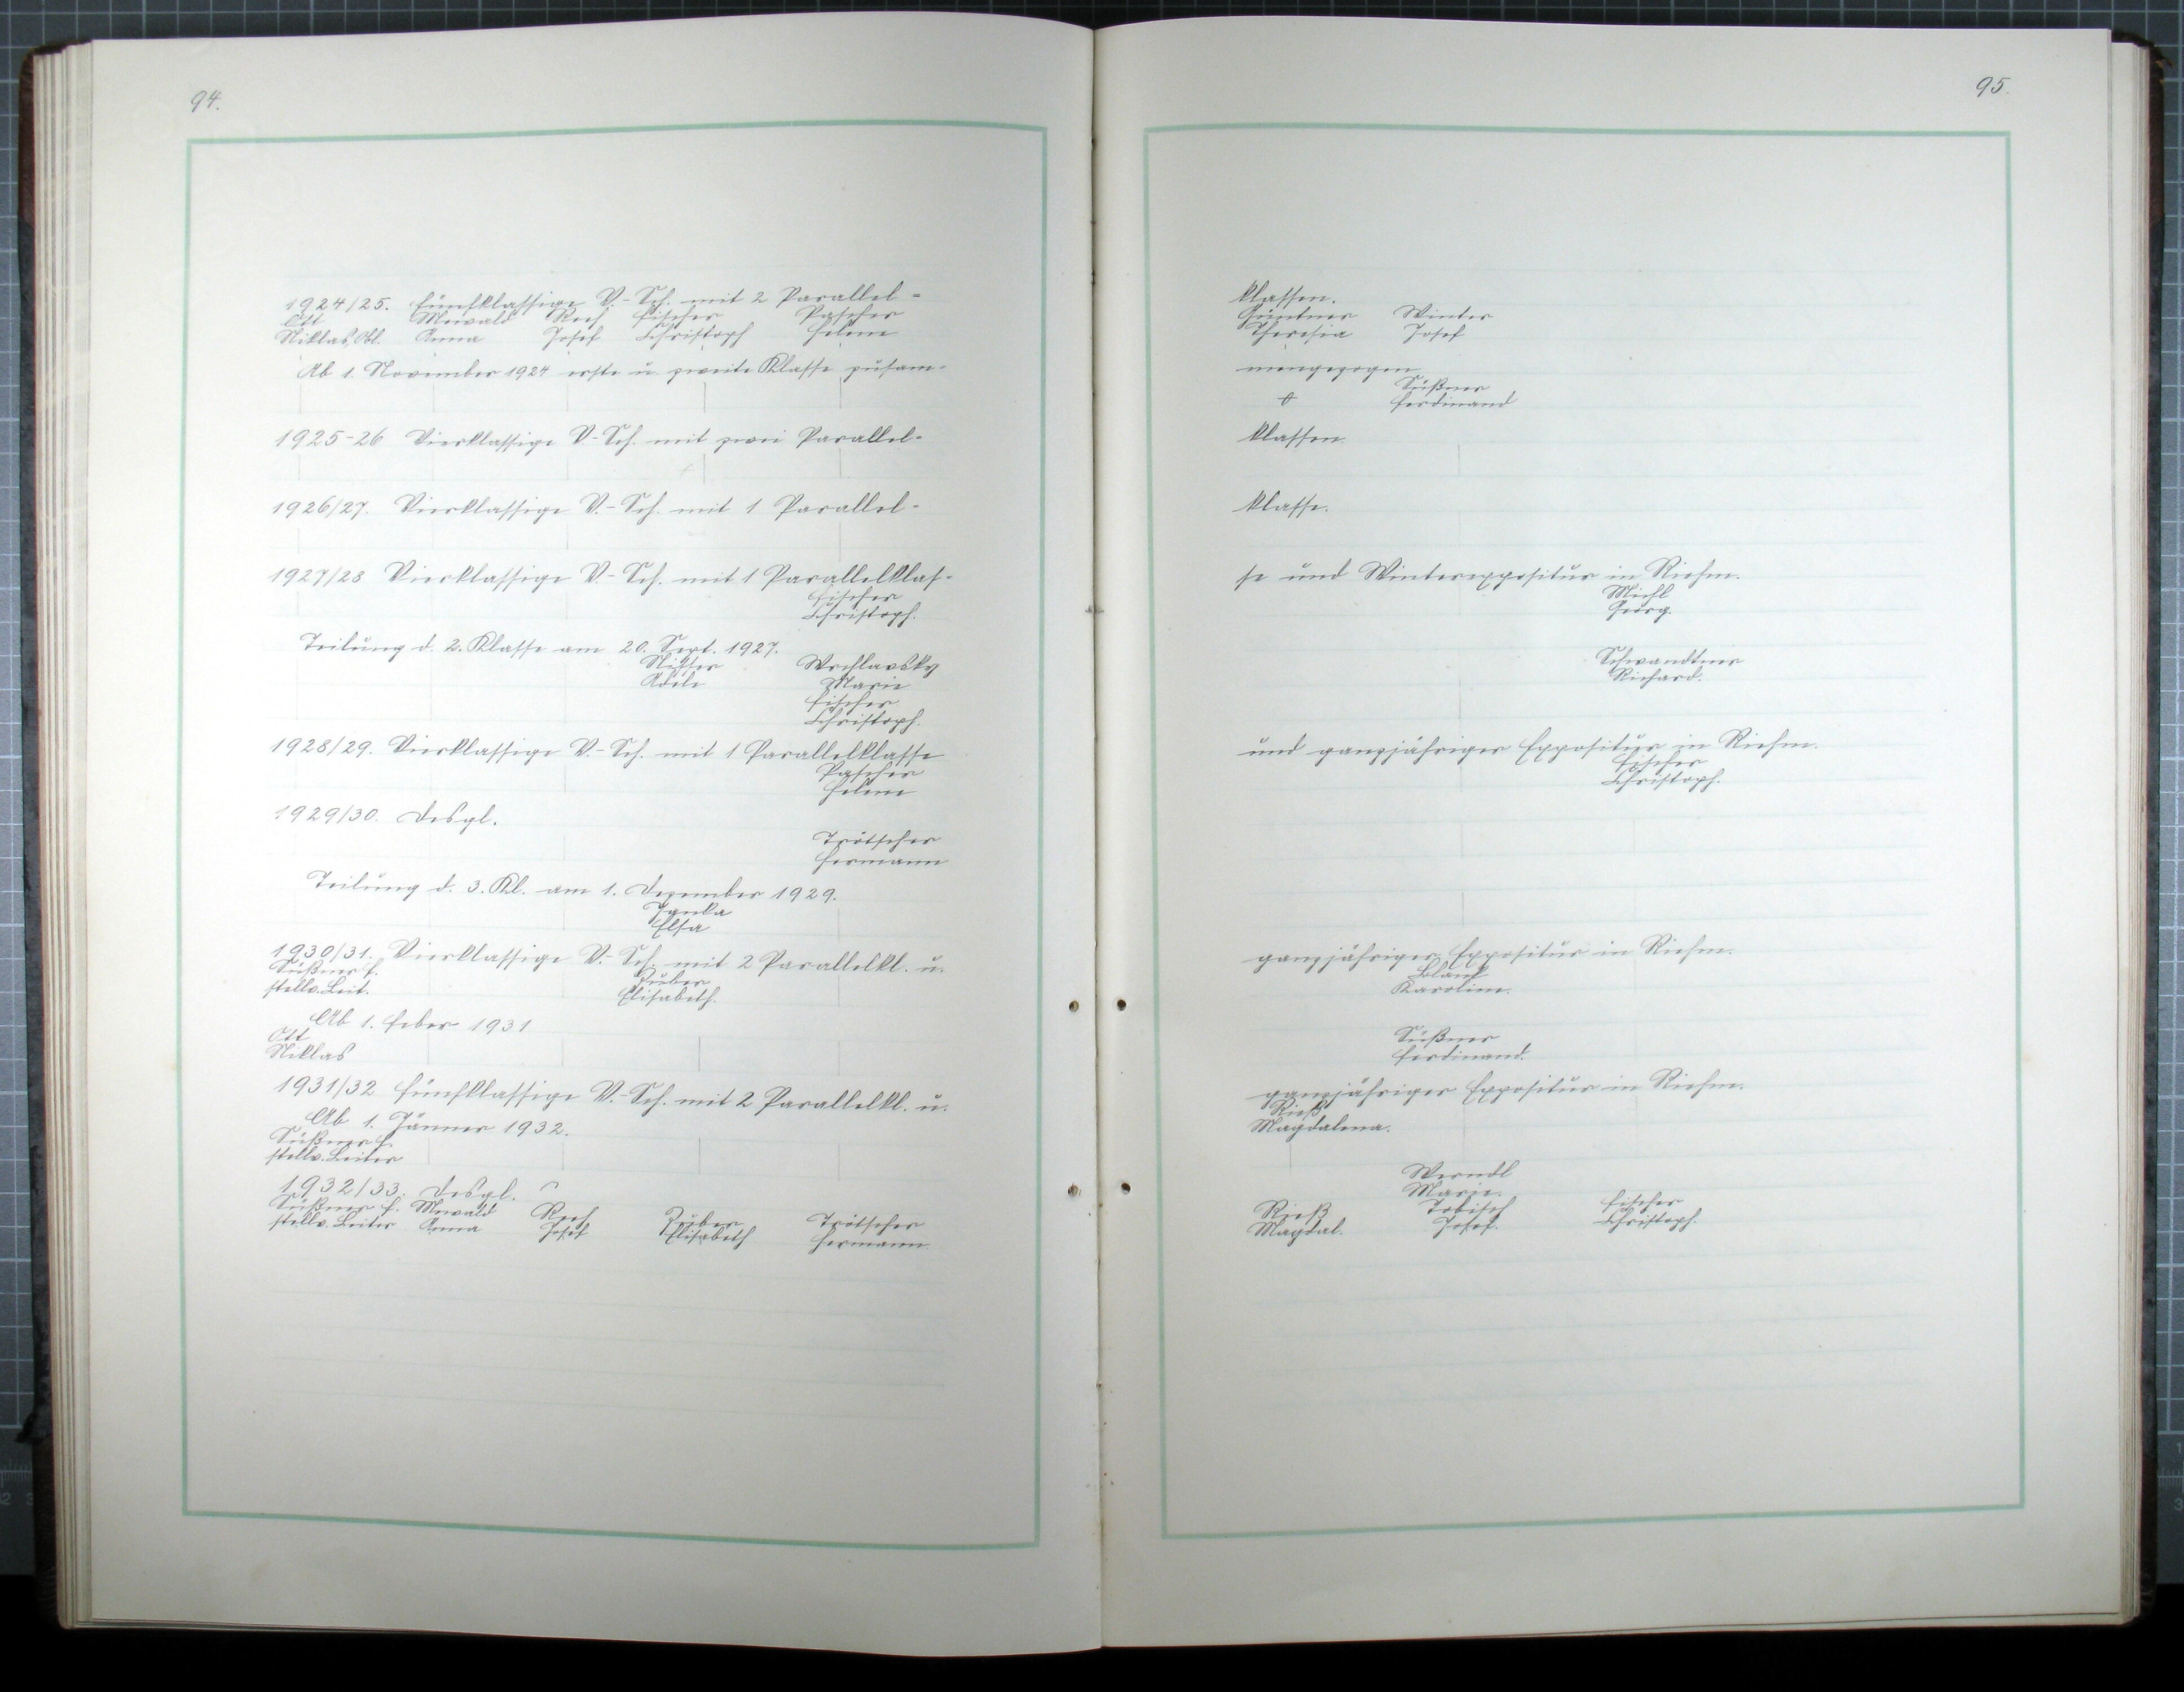 94.
1924/25. Fünfklassige V.-Sch. mit 2 Parallel=
Ott Mewald Reef Fischer Pascher
Niklas, Obl. Anna Josef Christoph Helene
Ab 1. November 1924 erste u. zweite Klasse zusam-
1925-26 Vierklassige V-Sch. mit zwei Parallel-
1926/27. Vierklassige V.-Sch. mit 1 Parallel-
1927/28 Vierklassige V.-Sch. mit 1 Parallelklas-
Fischer
Christoph.
Teilung d. 2. Klasse am 20. Sept. 1927.
Adele Marie
Fischer
Christoph.
1928/29. Vierklassige V.-Sch. mit 1 Parallelklasse
Pascher
Helene
1929/30. Desgl.
Trötscher
Hermann
Teilung d. 3. Kl. am 1. Dezember 1929.
Elsa
1930/31. Vierklassige V.-Sch. mit 2 Parallelkl. u.
Süßner f.
stellv. Leit. Elisabeth.
Ab 1. Feber 1931
Ott
Niklas
1931/32 Fünfklassige V.-Sch. mit 2 Parallelkl. u.
Ab 1. Jänner 1932.
Süßner f.
stellv. Leiter
1932/33. Desgl.
Süßner f. Mewald Reef Zuber Trötscher
stellv. Leiter Anna Josef Elisabeth Hermann
95.
klassen.
Güntner Winter
Theresia Josef
mengezogen
Süßner
Ferdinand
klassen
klasse.
se und Winterexpositur in Riehm.
Michl
Georg.
Schwandtner
Richard.
und ganzjähriger Expositur in Riehm.
Fischer
Christoph.
ganzjähriger Expositur in Riehm.
Blank
Karoline.
Süßner
Ferdinand.
ganzjähriger Expositur in Riehm.
Rieß
Magdalena.
Werndl
Marie.
Rieß Tobisch Fischer
Magdal. Josef. Christoph.